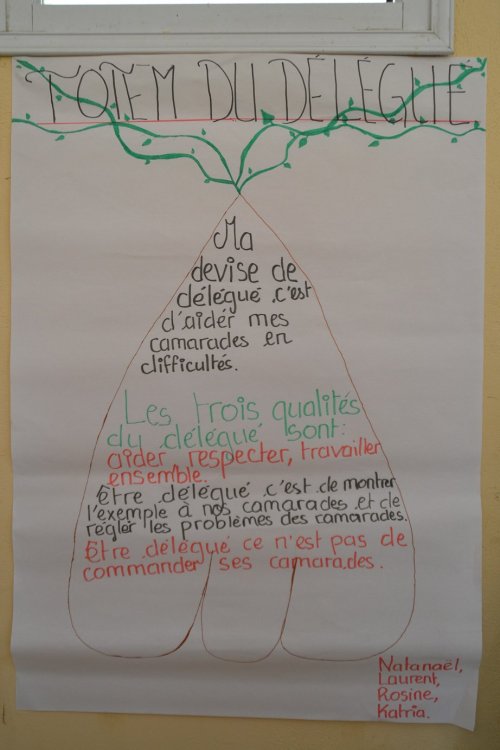 TOTEM DU DÉLÉGUÉ
Ma
devise de
délégué c'est
d'aidér mes
camarades en
difficultés.
Les trois qualités
du délégué sont:
aider, respecter, travailler
ensemble.
Être délégué c'est de montrer
l'exemple à nos camarades et de
régler les problèmes des camarades.
Être délégué ce n'est pas de
commander ses camarades.
Natanaël,
Laurent,
Rosine,
Katria.